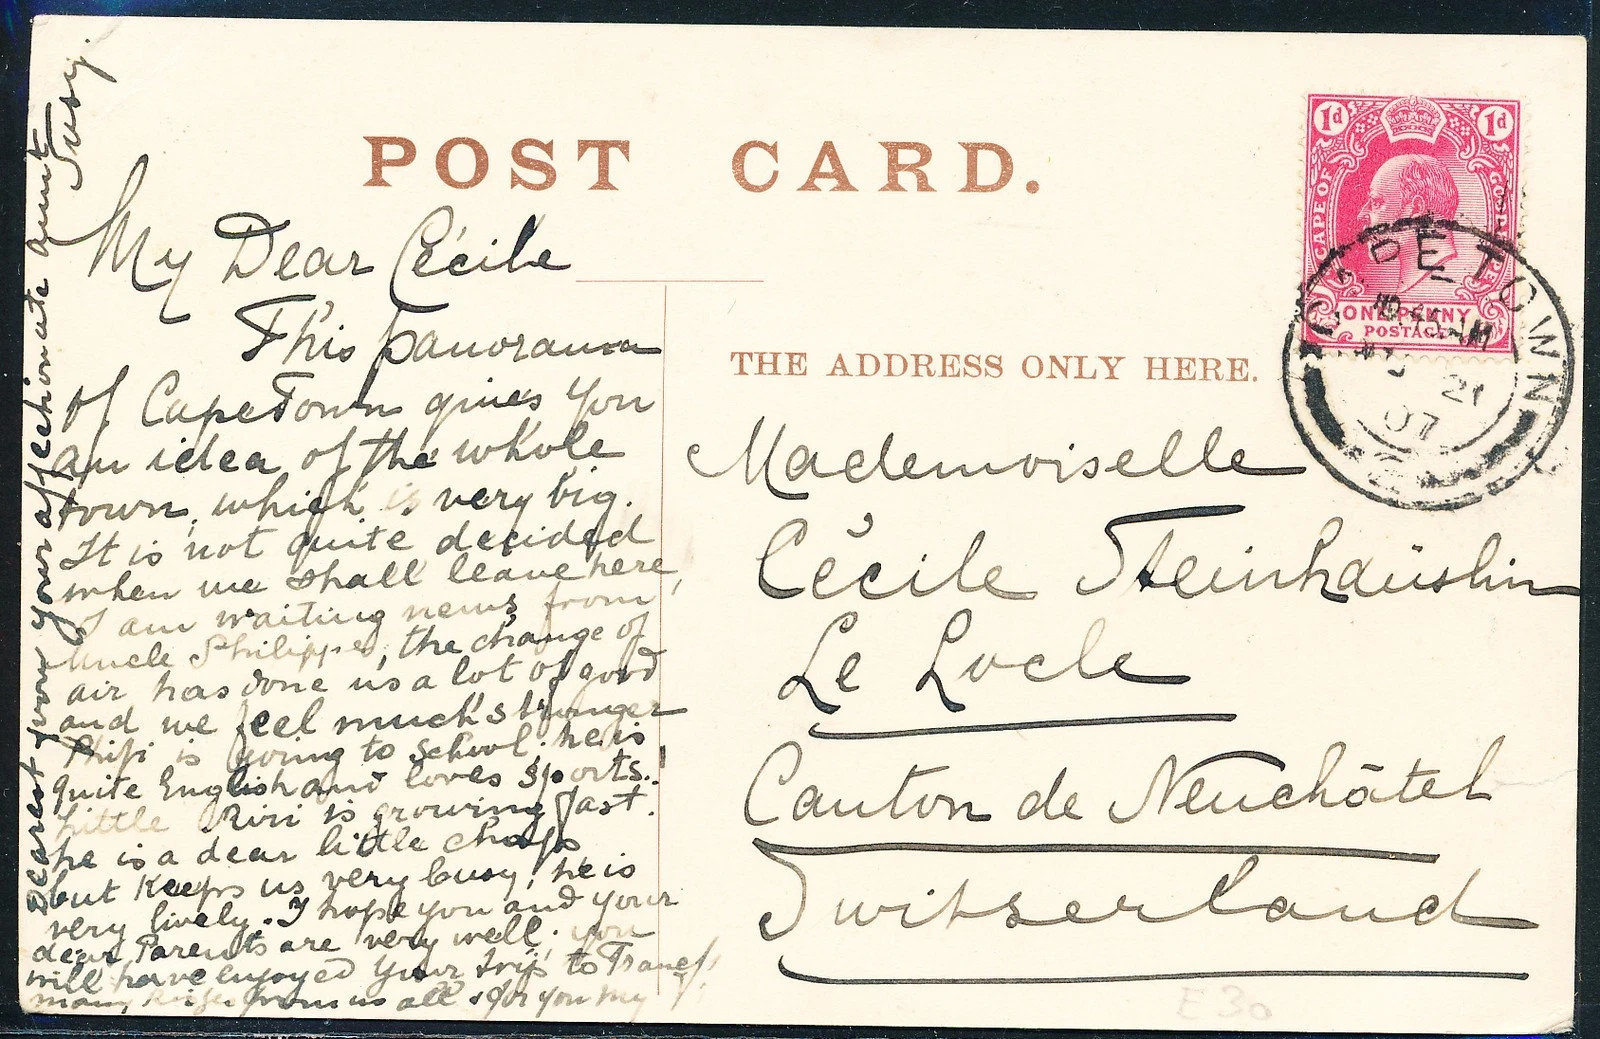 POST CARD.
My Dear Cécile
This panorama
of CapeTown gives you
an idea of the whole
town, which is very big.
It is not quite decided
when we shall leave here,
I am waiting news from
Uncle Philippe, the change of
air has done us a lot of good
and we feel much stronger
Phipi is going to school, he is
quite English and loves sports.
Little Riri is growing fast.
he is a dear little chap
but keeps us very busy, he is
very lively. I hope you and your
dear Parents are very well. you
will have enjoyed your trip to
many kisses from us all & for you my
Dearest from your affectionate Aunt
THE ADDRESS ONLY HERE.
Mademoiselle
Cécile Steinhaüslin
Le Locle
Canton de Neuchâtel
Switserland
1d 1d
CAPE OF GOOD HOPE
ONE PENNY
POSTAGE
CAPE TOWN
AM
21
07
E30